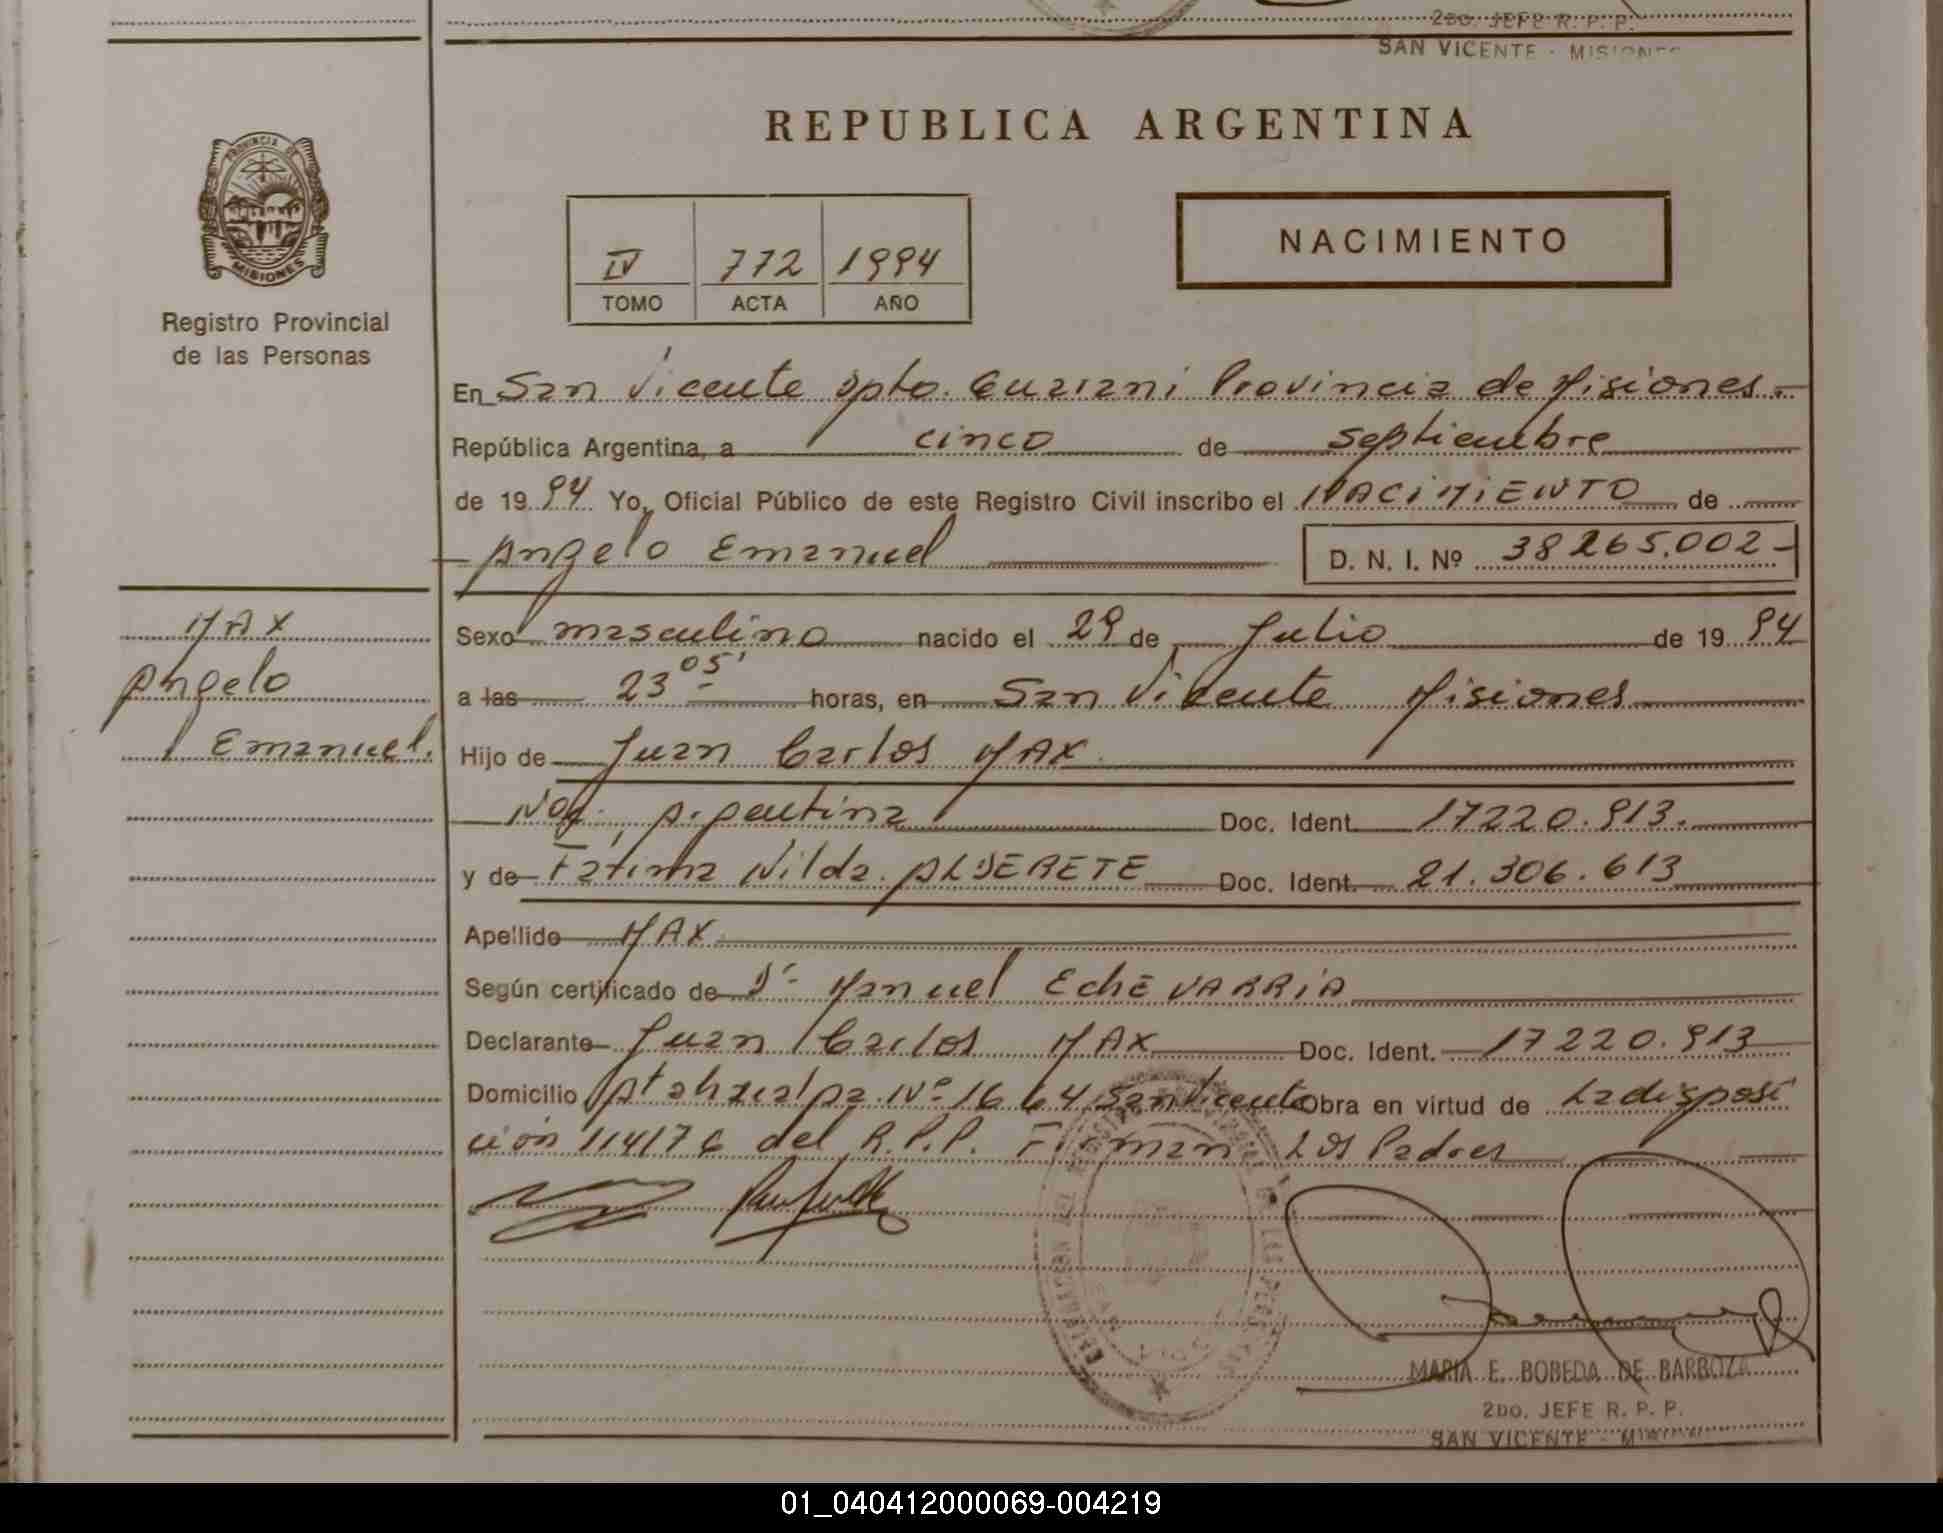 2DO. JEFE R. P. P.
SAN VICENTE - MISIONES
REPUBLICA ARGENTINA
PROVINCIA DE
MISIONES
Registro Provincial
de las Personas
IV 772 1994
TOMO ACTA AÑO
NACIMIENTO
En San Vicente Dpto. Guarani Provincia de Misiones.-
República Argentina, a cinco de septiembre
de 1994 Yo, Oficial Público de este Registro Civil inscribo el NACIMIENTO de
Angelo Emanuel D. N. I. Nº 38265.002-
MAX
Angelo
Emanuel.
Sexo masculino nacido el 29 de Julio de 1994
a las 23 05' horas, en San Vicente Misiones
Hijo de Juan Carlos MAX
Nac. Argentina Doc. Ident. 17220.913.
y de Fátima Nilda ALDERETE Doc. Ident. 21.306.613
Apellido MAX
Según certificado de Dr Manuel EchEVARRiA
Declarante Juan Carlos MAX Doc. Ident. 17220.913
Domicilio Atahualpa Nº 1664 San Vicente Obra en virtud de La disposi
ción 114176 del R.P.P. Firman Los Padres
MARIA E. BOBEDA DE BARBOZA
2DO. JEFE R. P. P.
SAN VICENTE - MISIONES
01_040412000069-004219